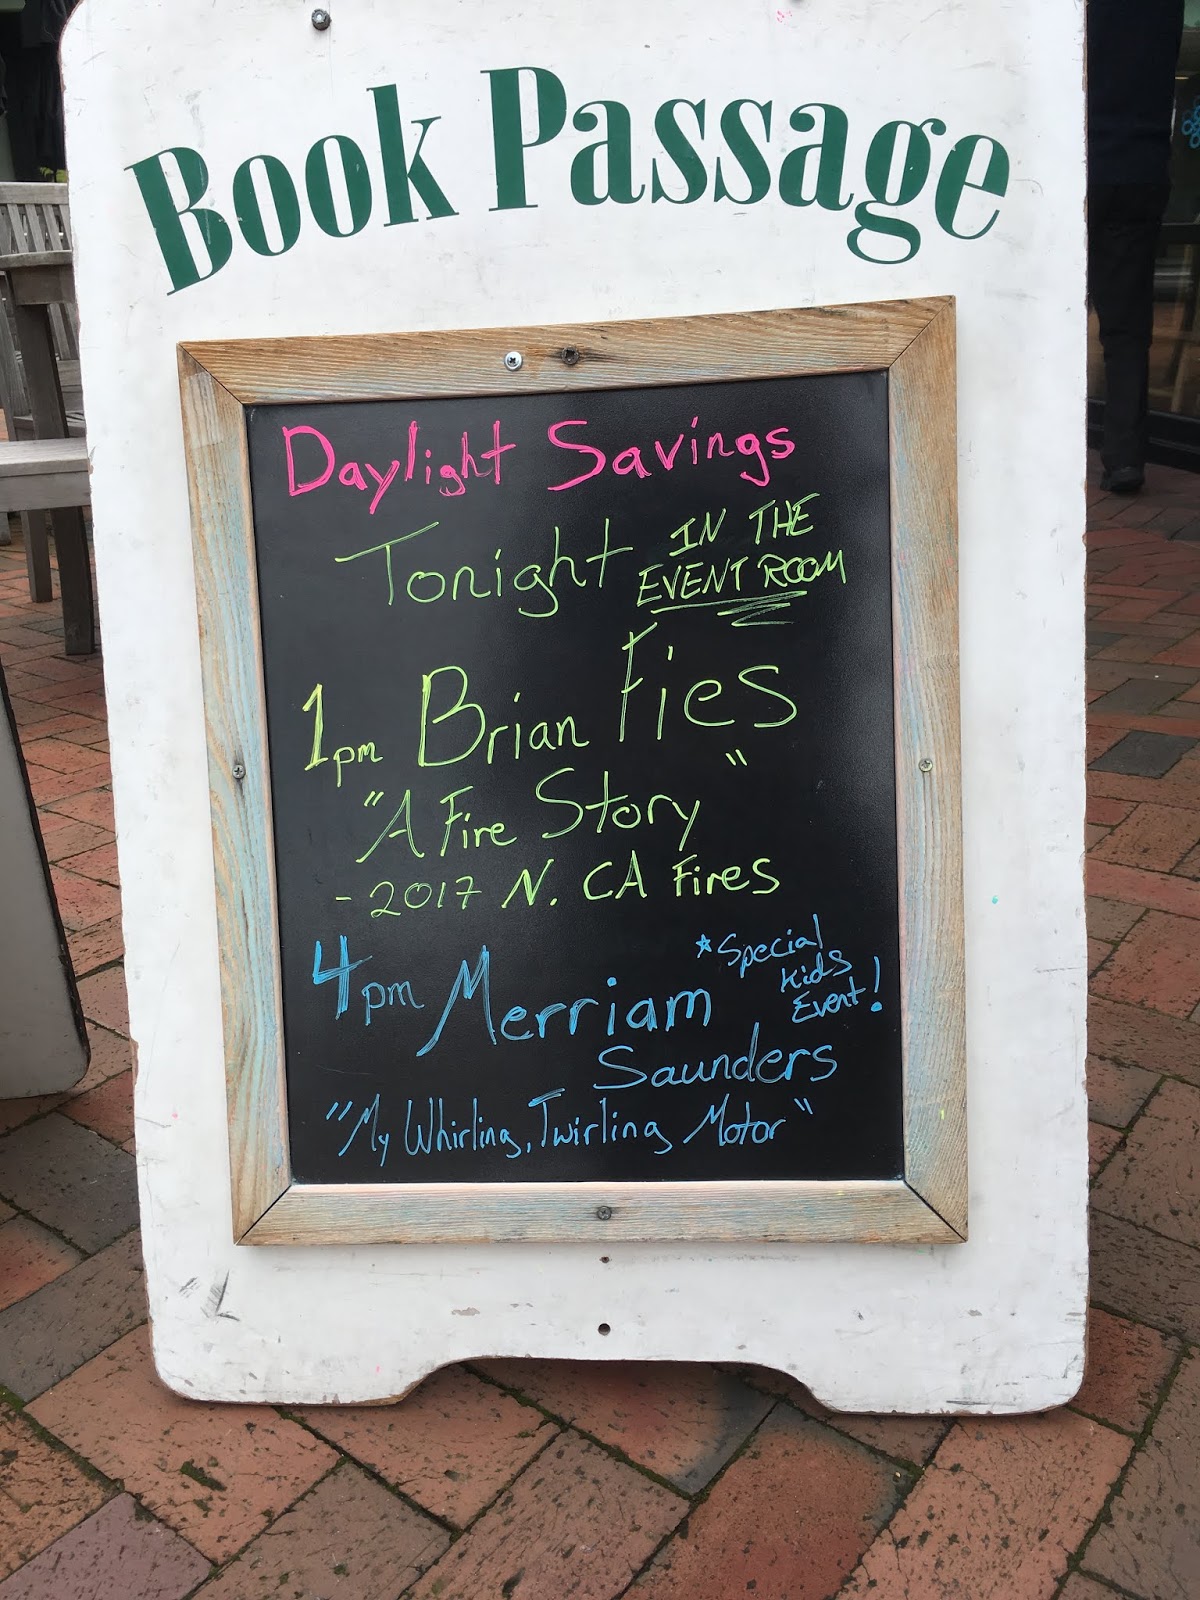 Book Passage
Daylight Savings
Tonight IN THE
EVENT ROOM
1pm Brian Fies
"A Fire Story"
- 2017 N. CA Fires
*Special
Kids
Event!
4pm Merriam
Saunders
"My Whirling, Twirling Motor"